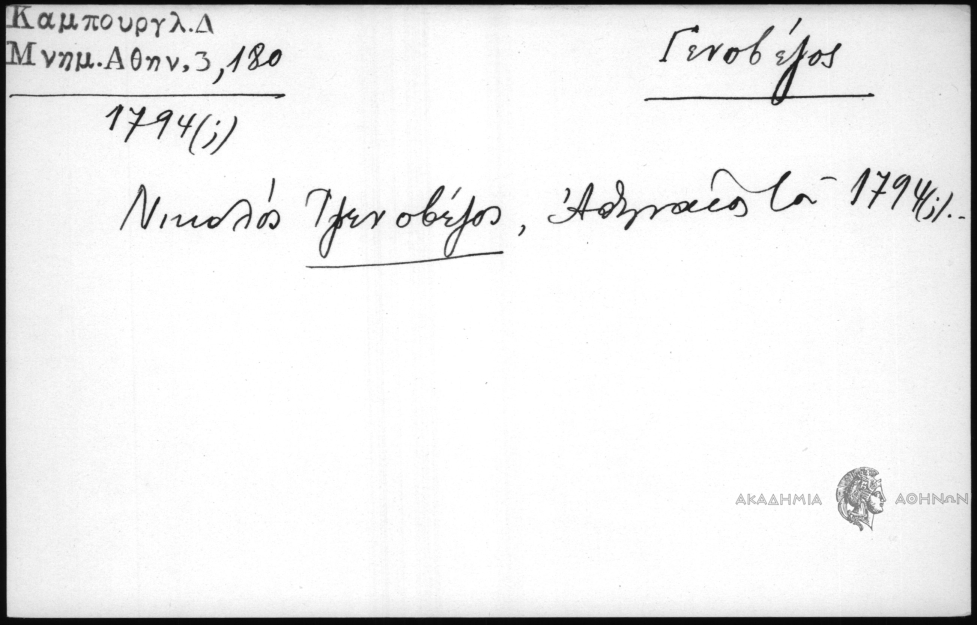 Καμπουργλ.Δ
Μνημ.Αθην.3,180
Γενοβέζος
1794(;)
Νικολός Τζενοβέζος, Ἀθηναῖος τὸ 1794(;)..
ΑΚΑΔΗΜΙΑ ΑΘΗΝΩΝ